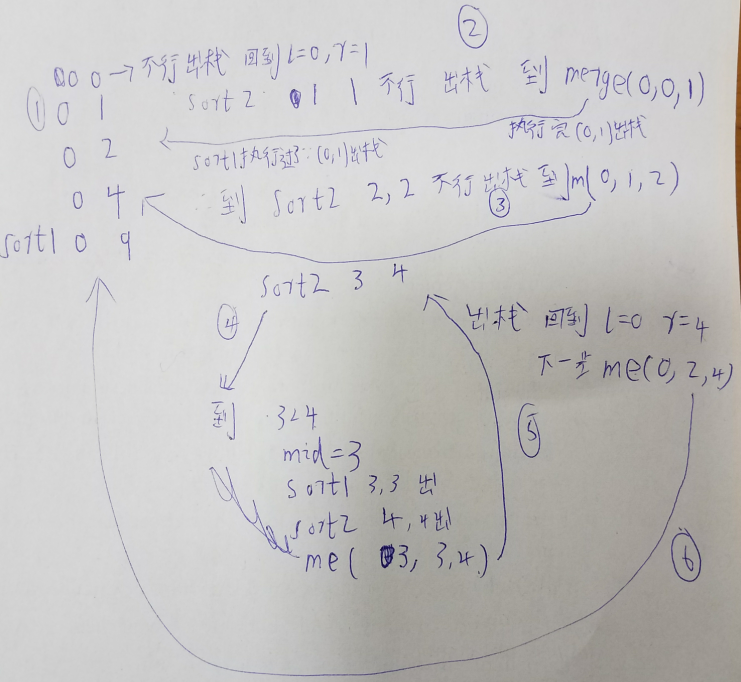 ②
0 0 → 不行出栈 回到 l=0, r=1
① 0 1 sort2 1 1 不行 出栈 到 merge(0,0,1)
执行完(0,1)出栈
0 2 sort1执行过了∴(0,1)出栈
0 4 ∴到 sort2 2,2 不行出栈 到m(0,1,2)
③
sort1 0 9
sort2 3 4
④ 出栈 回到 l=0 r=4
下一步 me(0,2,4)
到 3<4
⑤
mid=3
sort1 3,3 出
sort2 4,4出
me( 3, 3,4)
⑥